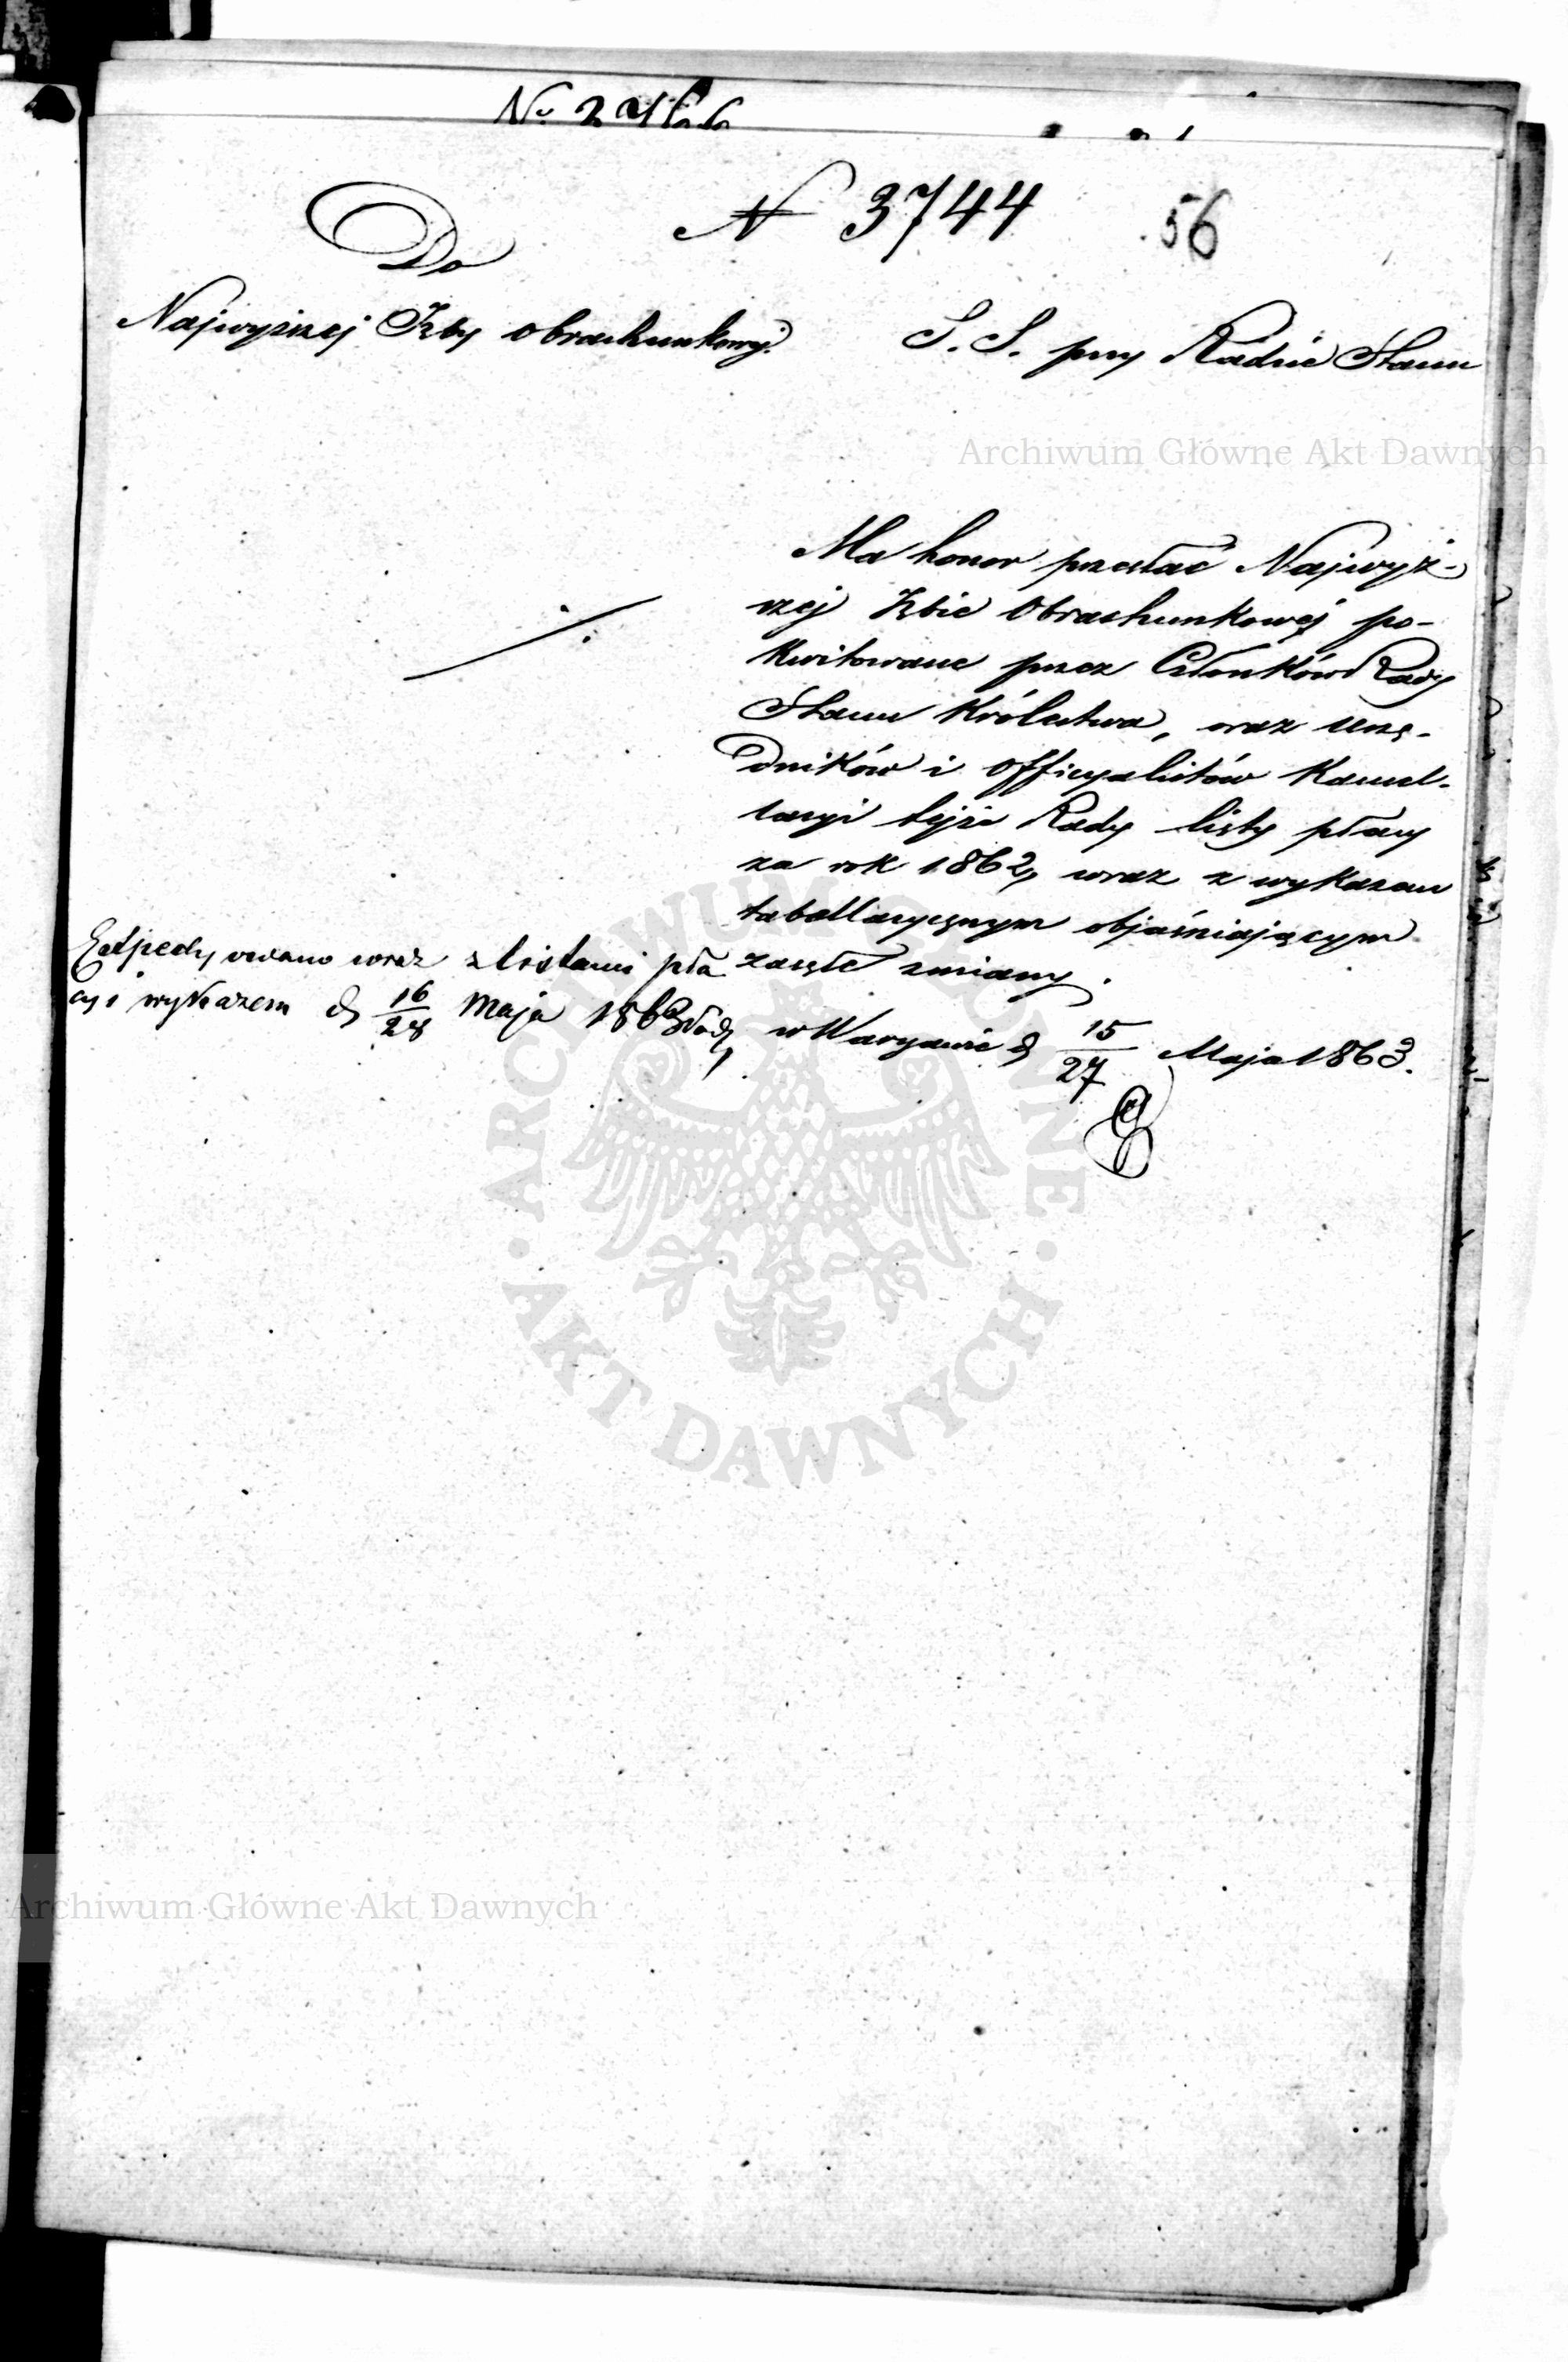 N 3744
56
Do
Najwyższej Izby obrachunkowej.
S. S. przy Radzie Stanu
Archiwum Główne Akt Dawnych
Ma honor przesłać Najwyż-
szej Izbie Obrachunkowej po-
kwitowane przez Członków Rady
Stanu Królestwa, oraz urzę-
dników i officyalistów Kancel-
laryi tejże Rady listy płacy
za rok 1862, wraz z wykazem
tabellarycznym objaśniającym
zaszłe zmiany.
w Warszawie d 15/27 Maja 1863.
Exspedyowano wraz z listami pła
cy i wykazem d 16/28 Maja 1863
ARCHIWUM GŁÓWNE AKT DAWNYCH
Archiwum Główne Akt Dawnych